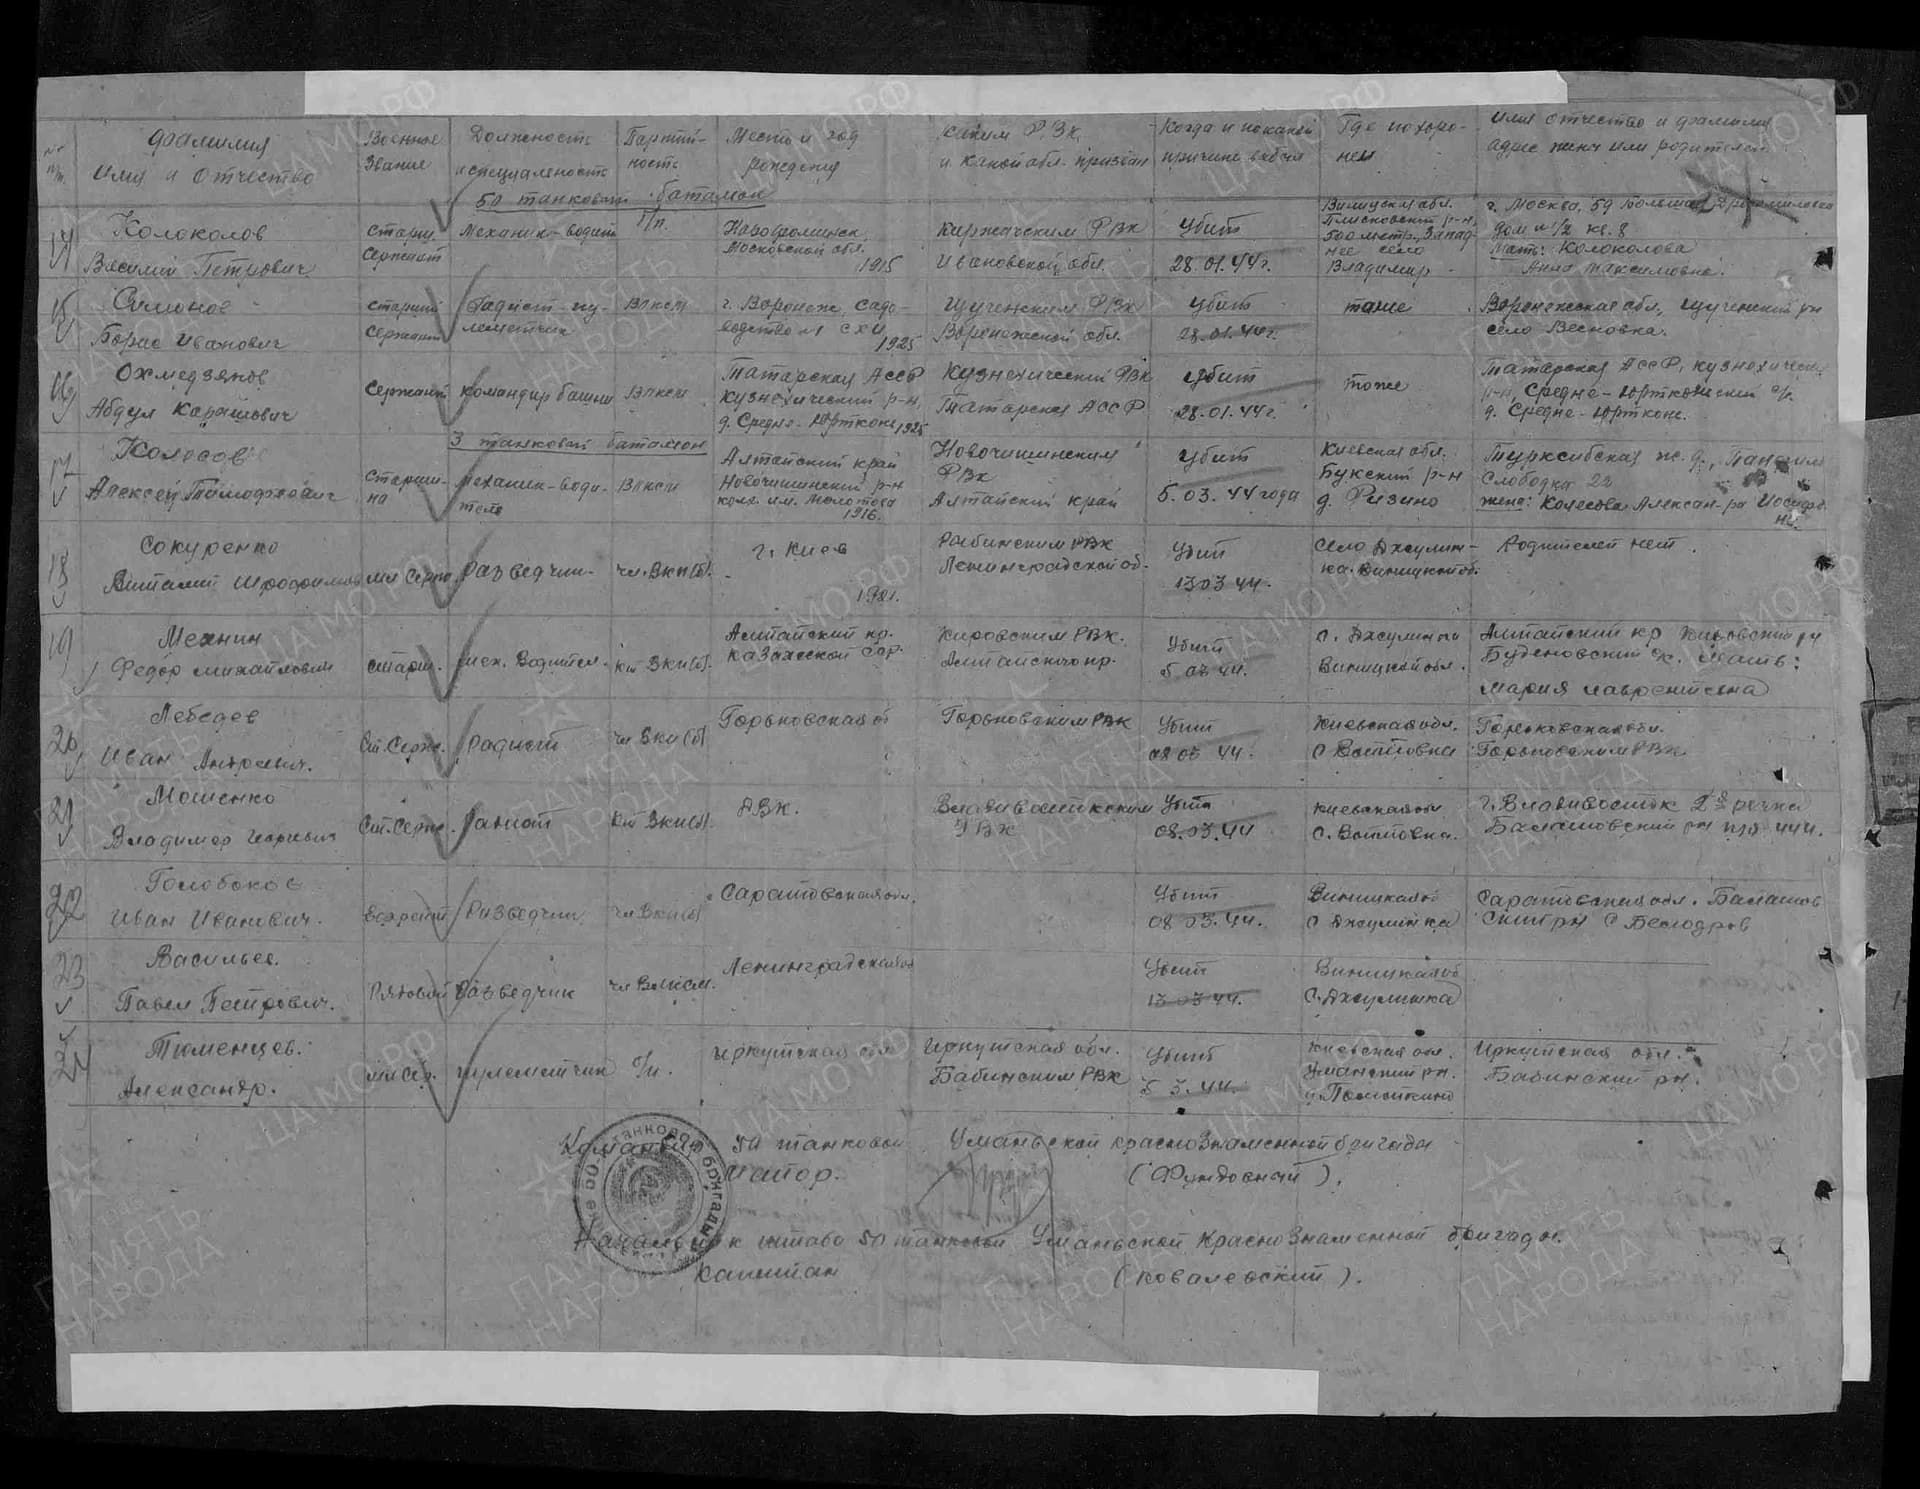 №№ п/п.
фамилия
имя и отчество
Военное
Звание
Должность
и специальность
Партий-
ность
Место и год
рождения
каким РВК
и какой обл. призван
Когда и по какой
причине выбыл
Где похоро-
нен
имя отчество и фамилия
адрес жены или родителей
50 танковый батальон
14
Колоколов
Василий Петрович
Старш.
Сержант
Механик-водит
б/п.
Нарофоминск
Московской обл.
1915
Киржачским РВК
Ивановской обл.
убит
28.01.44г.
Виницкая обл.
Плисковский р-н,
500 метр. Запад-
нее село
Владимир
г. Москва, 59 Большая Дрогомиловка
дом № 1/2 кв. 8
Мать: Колоколова
Анна Максимовна.
15
Симонов
Борис Иванович
Старший
Сержант
Радист-пу-
леметчик
Влксм
г. Воронеж, Садо-
водство №1 СХИ
1925
Щученским РВК
Воронежской обл.
убит
28.01.44г.
тоже
Воронежская обл., Щученский рн
село Весновка.
16
Охмедзянов
Абдул Карашович
Сержант
командир башни
Влксм
Татарская АССР
Кузнехический р-н,
д. Средне-Юрткони 1925
Кузнехический РВК
Татарская АССР
убит
28.01.44г.
тоже
Татарская АССР, кузнехическ
р-н, Средне-Юрткульский с/с.
д. Средне-Юрткони.
3 танковый батальон
17
Колосов
Алексей Тимофеевич
Старши-
на
Механик-води-
тель
Влксм
Алтайский край
Новочишинский р-н
колх. им. Молотова
1916.
Новочишинским
РВК
Алтайский край
убит
5.03.44 года
Киевская обл.
Букский р-н
д. Ризино
Турксибская ж.д.,
Слободка 22
жена: Колесова Алексан-ра Иосифо
на.
18
Сокуренко
Виталий
мл Серж
Разведчик-
чл. Вкп(б).
г. Киев
Рыбинским РВК
Ленинградской об.
Убит
13 03 44.
Село Джулин-
ка. Виницкой об.
Родителей нет.
19
Механин
Федор михайлович
старш.
мех. Водител.
кт Вкп(б).
Алтайский кр.
Кировским РВК.
Алтайского кр.
Убит
5 03 44.
с. Джулинки
Виницкой обл.
Алтайский кр Кировский рн
Буденовский с/с. мать:
Мария Лаврентевна
20
Лебедев
Иван Андреевич.
Ст. Серж.
Радист
чл Вкп(б)
Горьковская об
Горьковским РВК
Убит
08 03 44.
Киевская обл.
с Вотыловка
Горьковская обл.
Горьковским РВК
21
Мошенко
Владимир Георгиевич
Ст. Серж.
Радист
кт Вкп(б).
ДВК.
Владивостокским
РВК
Убит
08.03.44
Киевская обл
с. Вотыловка.
г. Владивосток 2я речка
444.
22
Голобоков
Иван Иванович.
Разведчик
чл Вкп(б)
Саратовская обл.
Убит
08 03.44.
Виницкая об
с Джулинка
Саратовская обл. Балашов
Ский рн с
23
Васильев.
Павел Петрович.
Рядовой
Разведчик
чл Влксм.
Ленинградская об
Убит
13 03 44.
Виницкая об
с. Джулинка
24
Тюменцев.
Александр.
мл Сер.
пулеметчик
б/п.
Иркутская обл
Иркутская обл.
Бабинским РВК
Убит
5 3. 44.
Киевская обл.
Уманский рн.
Иркутская обл.
Бабинский рн.
Командир 50 танковой Уманьской краснознаменной бригады
Майор.
(Фундовный).
Начальник штаба 50 танковой Уманьской Краснознаменной бригады.
Капитан
(Ковалевский).
танковой бригады
ПАМЯТЬ НАРОДА
ЦАМО РФ